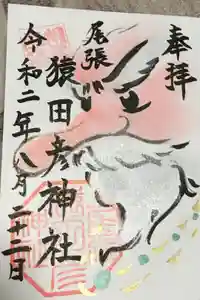 奉拝
尾張
猿田彦神社
令和二年八月二十二日